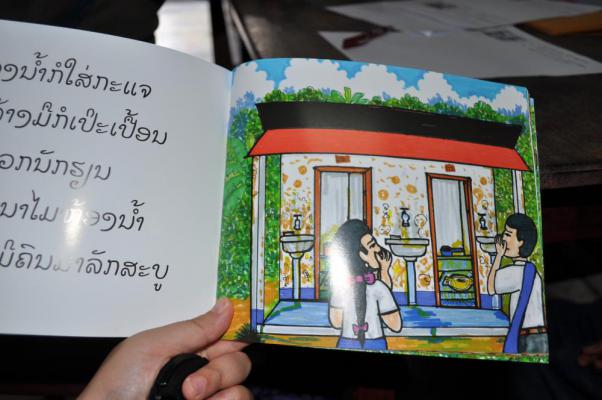 ອງນ້ຳກໍໃສ່ກະແຈ
ລ້າງມືກໍເປິະເປື້ອນ
ອກນັກຮຽນ
ມາໄມ ຫ້ອງນ້ຳ
ມີຄົນມາລັກສະບູ